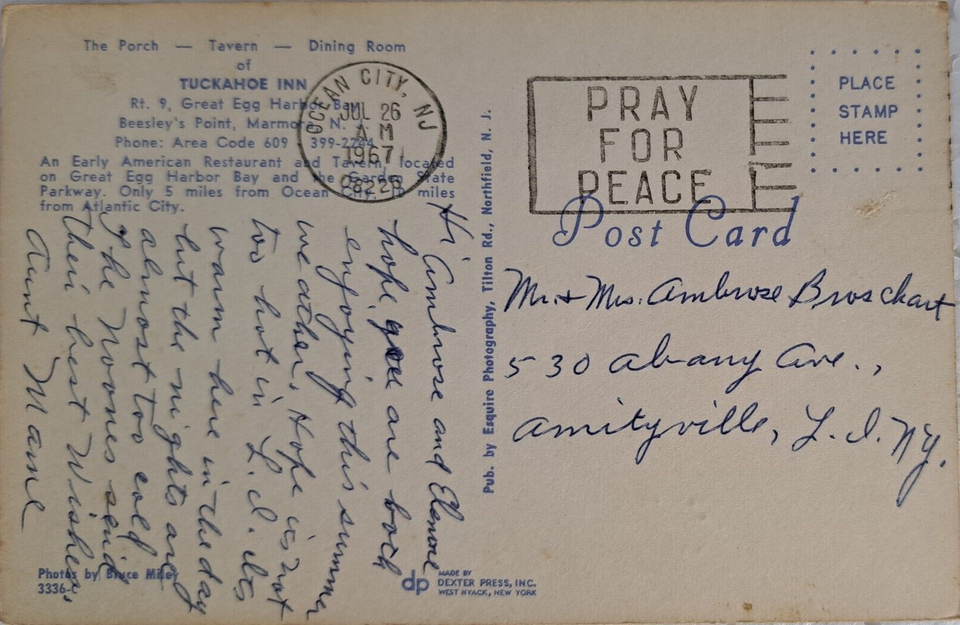 The Porch — Tavern — Dining Room
of
TUCKAHOE INN
Rt. 9, Great Egg Harbor Bay
Beesley's Point, Marmora, N. J.
Phone: Area Code 609 399-2744
An Early American Restaurant and Tavern, located
on Great Egg Harbor Bay and the Garden State
Parkway. Only 5 miles from Ocean City, miles
from Atlantic City.
OCEAN CITY, NJ
JUL 26
AM
1967
08226
PRAY
FOR
PEACE
PLACE
STAMP
HERE
Post Card
Hi Ambrose and Elenore
hope you are both
enjoying this summer
weather, Hope is not
too hot in L.I. its
warm here in the day
but the nights are
almost too cold
The Noones send
their best Wishes,
Aunt Mame
Pub. by Esquire Photography, Tilton Rd., Northfield, N. J.
Mr. + Mrs. Ambrose Broschart
530 Albany Ave.,
Amityville, L.I. NY.
Photos by Bruce Miley
3336-C
dp
MADE BY
DEXTER PRESS, INC.
WEST NYACK, NEW YORK